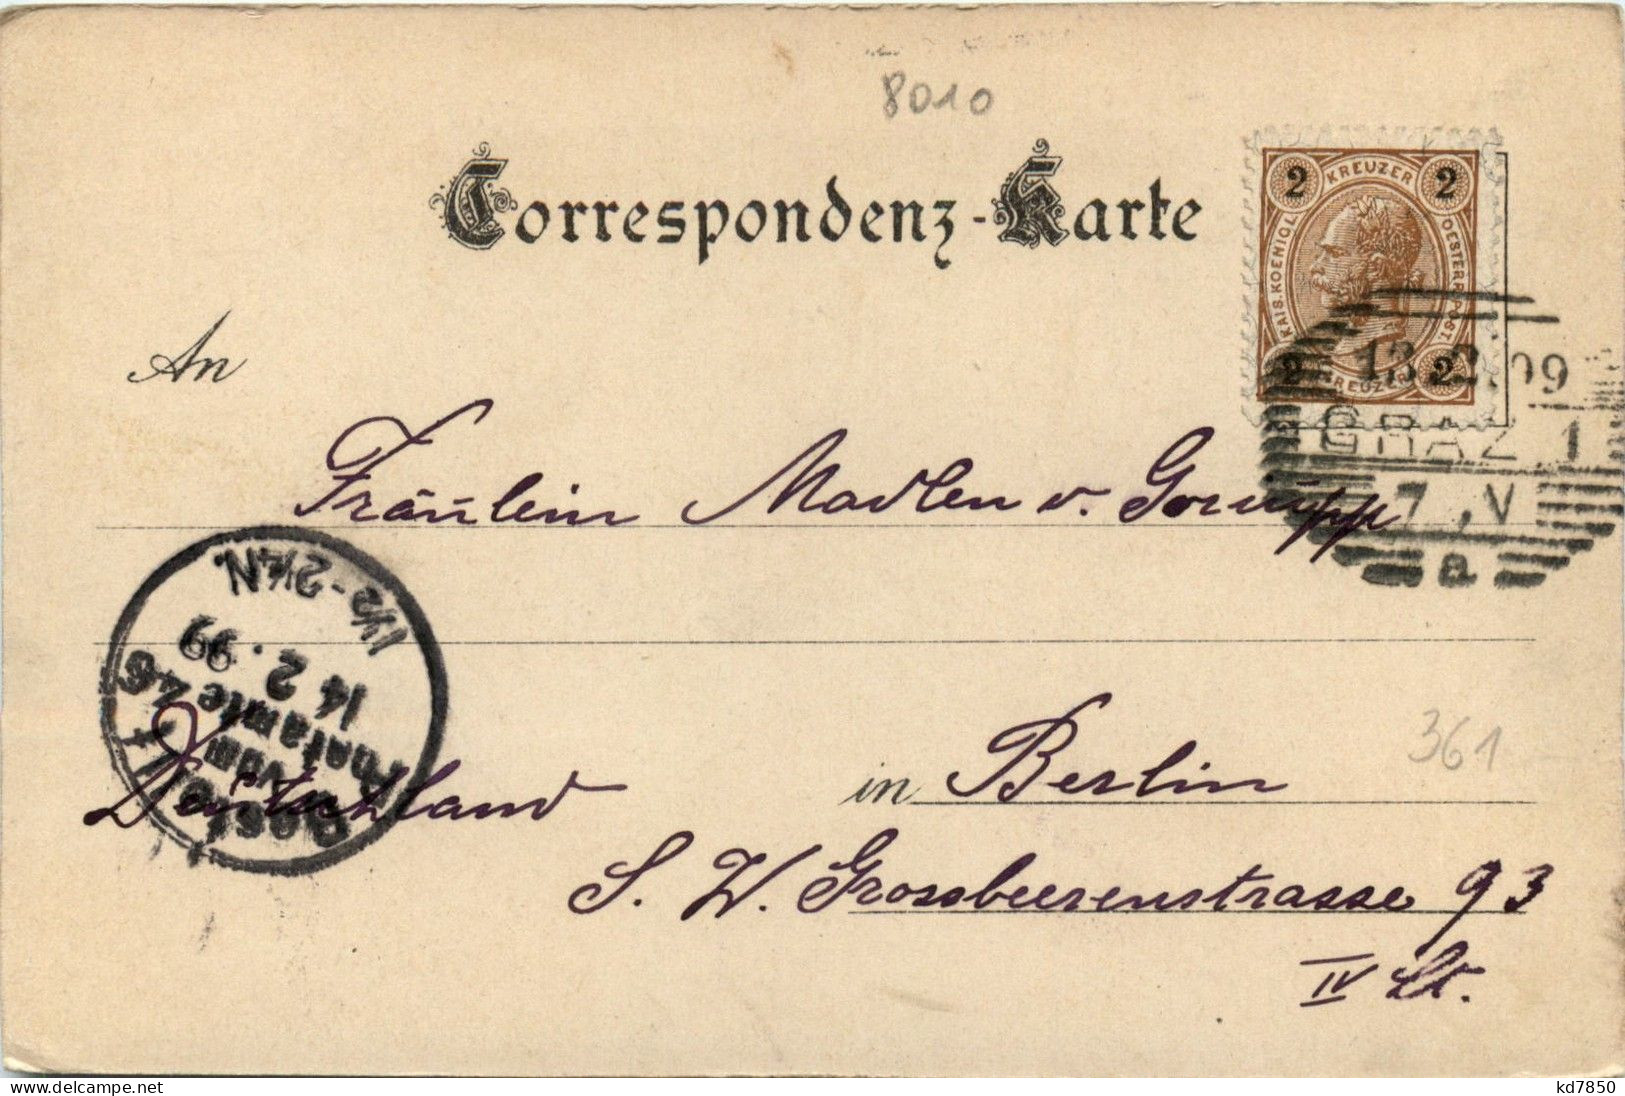 8010
Correspondenz-Karte
2 KREUZER 2
KAIS. KOENIGL. OESTERR. POST.
2 KREUZER 2
13 2 99
GRAZ 1
7 , V
a
An
Fräulein Madlen v.
1½-2½N.
14 2. 99
Postamte 46
vom
Bestellt
Deutschland
in Berlin
361
S. W. Grossbeerenstrasse 93
IV St.
www.delcampe.net
kd7850